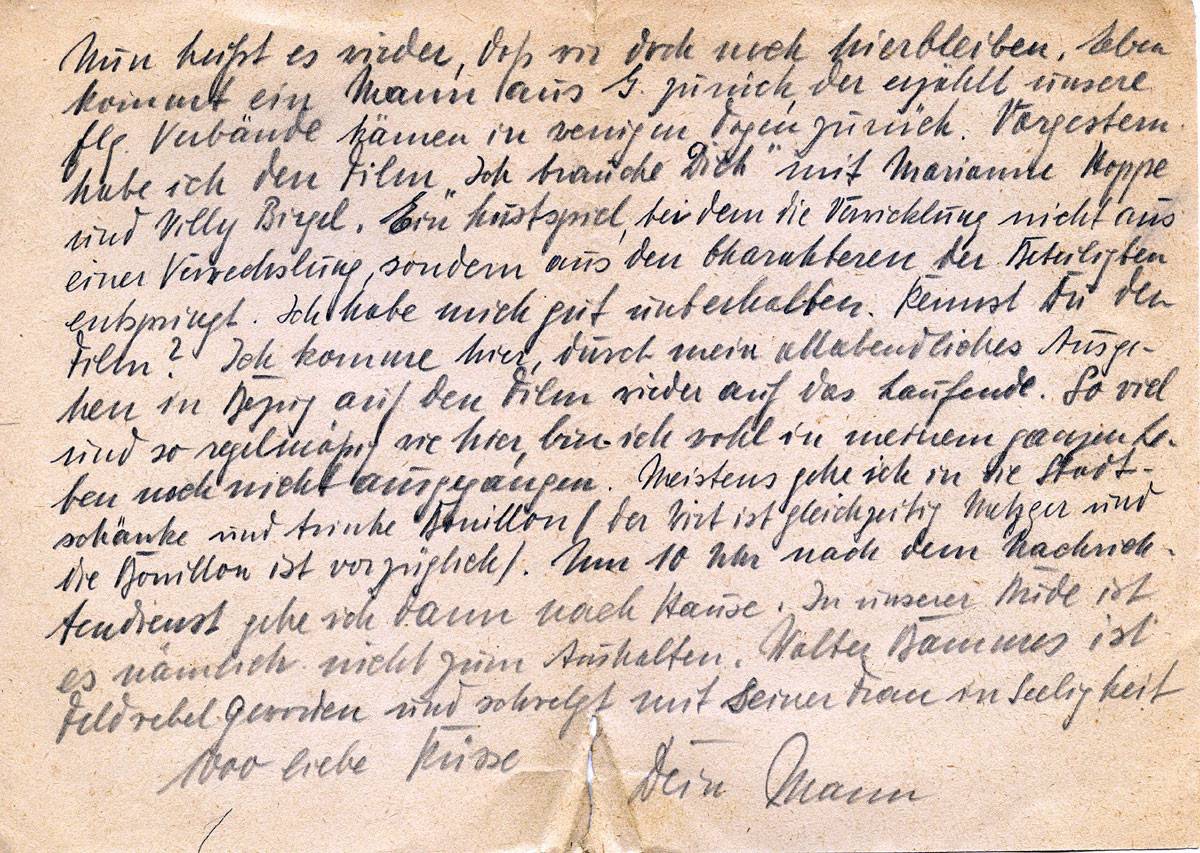 Nun heißt es wieder, daß wir doch noch hierbleiben. Eben
kommt ein Mann aus G. zurück, der erzählt unsere
flg. Verbände kämen in wenigen Tagen zurück. Vorgestern
habe ich den Film „Ich brauche Dich" mit Marianne Hoppe
und Willy Birgel. Ein Lustspiel, bei dem die Verwicklung nicht aus
einer Verwechslung, sondern aus den Charakteren der Beteiligten
entspringt. Ich habe mich gut unterhalten. Kennst Du den
Film? Ich komme hier, durch mein allabendliches Ausge-
hen in Bezug auf den Film wieder auf das Laufende. So viel
und so regelmäßig wie hier, bin ich wohl in meinem ganzen Le-
ben noch nicht ausgegangen. Meistens gehe ich in die Stadt-
schänke und trinke Bouillon (der Wirt ist gleichzeitig Metzger und
die Bouillon ist vorzüglich). Um 10 Uhr nach dem Nachrich-
tendienst gehe ich dann nach Hause. In unserer Bude ist
es nämlich nicht zum Aushalten. Walter ist
Feldwebel geworden und schwelgt mit seiner Frau in Seeligkeit
1000 liebe Küsse Dein Mann